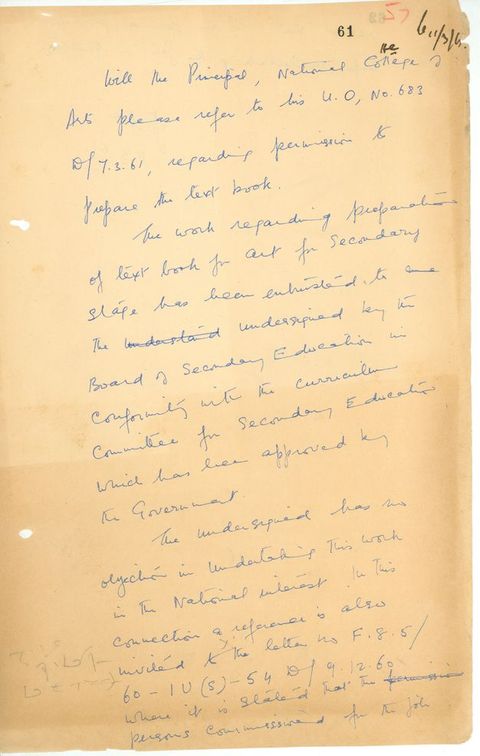 61
57
Will the Principal, National College of
Arts please refer to his U.O, No. 683
D/ 7.3.61, regarding permission to
prepare the text book.
The work regarding preparation
of text book for art for Secondary
stage has been entrusted to
the understand undersigned by the
Board of Secondary Education in
conformity with the curriculum
Committee for Secondary Education
which has been approved by
the Government.
The undersigned has no
objection in undertaking this work
in the National interest. In this
connection a reference is also
invited to the letter no F.8.5/
60-1U(S)-54 D/ 9.12.60
where it is stated that the
persons commissioned for the job